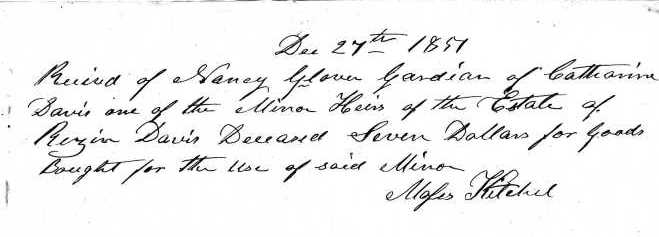 Dec 27th 1851
Recived of Nancy Glover Gardian of Catharine
Davis one of the Minor Heirs of the Estate of
Rezin Davis Deceased Seven Dollars for Goods
bought for the use of said Minor
Moses Kitchel